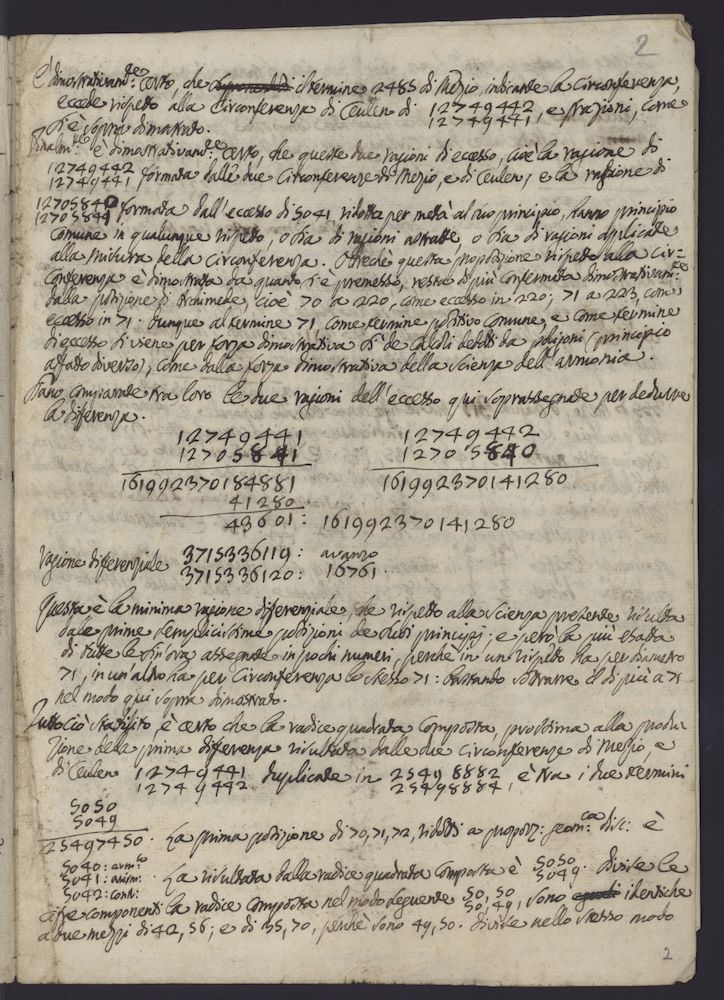 2
È dimostrativam.te certo, che il termine 2485 di Mezio, indicante la Circonferenza,
eccede rispetto alla Circonferenza di Ceulen di 12749442 / 12749441, e frazioni, come
si è sopra dimostrato.
Finalm.te è dimostrativam.te certo, che queste due ragioni di eccesso, cioè la ragione di
12749442 / 12749441 formata dalle due Circonferenze di Mezio, e di Ceulen, e la ragione di
12705840 / 12705841 formata dall'eccesso di 5041 ridotta per metà al suo principio, hanno principio
comune in qualunque rispetto, o sia di ragioni astratte, o sia di ragioni applicate
alla misura della Circonferenza. Oltreché questa proposizione rispetto alla Cir=
conferenza è dimostrata da quanto si è premesso, resta di più confermata dimostrativam.te
dalla posizione di Archimede, cioè 70 a 220, come eccesso in 220; 71 a 223, come
eccesso in 71. Dunque al termine 71, come termine positivo comune, e come termine
di eccesso si viene per forza dimostrativa sì de Calcoli dedotti da poligoni (principio
affatto diverso), come dalla forza dimostrativa della scienza dell'armonia.
Siano comparate tra loro le due ragioni dell'eccesso qui soprassegnate per dedurre
la differenza.
12749441 12749442
12705841 12705840
161992370184881 161992370141280
41280
43601: 161992370141280
Ragione differenziale 3715336119: avanzo
3715336120: 16761.
Questa è la minima ragione differenziale, che rispetto alla scienza presente risulta
dalle prime semplicissime posizioni de suoi principj; e però la più esatta
di tutte le sin'ora assegnate in pochi numeri, perché in un rispetto ha per diametro
71, in un'altro ha per Circonferenza lo stesso 71: bastando sottrarre il di più a 71
nel modo qui sopra dimostrato.
Tutto ciò stabilito è certo che la radice quadrata composta, prossima alla produ
zione delle prima differenza risultata dalle due circonferenze di Mezio, e
di Ceulen 12749441 / 12749442 duplicate in 25498882 / 25498884, è tra i due termini
5050
5049
25497450. La prima posizione di 70, 71, 72, ridotti a proporz: geom:ca disc: è
5040: arm:co
5041: arim:
5042: cont:
La risultata dalla radice quadrata composta è 5050 / 5049. Divise le
cifre componenti la radice composta nel modo seguente 50, 50 / 50, 49, sono identiche
a due mezzi di 42, 56; e di 35, 70, perchè sono 49, 50. Divise nello stesso modo
2